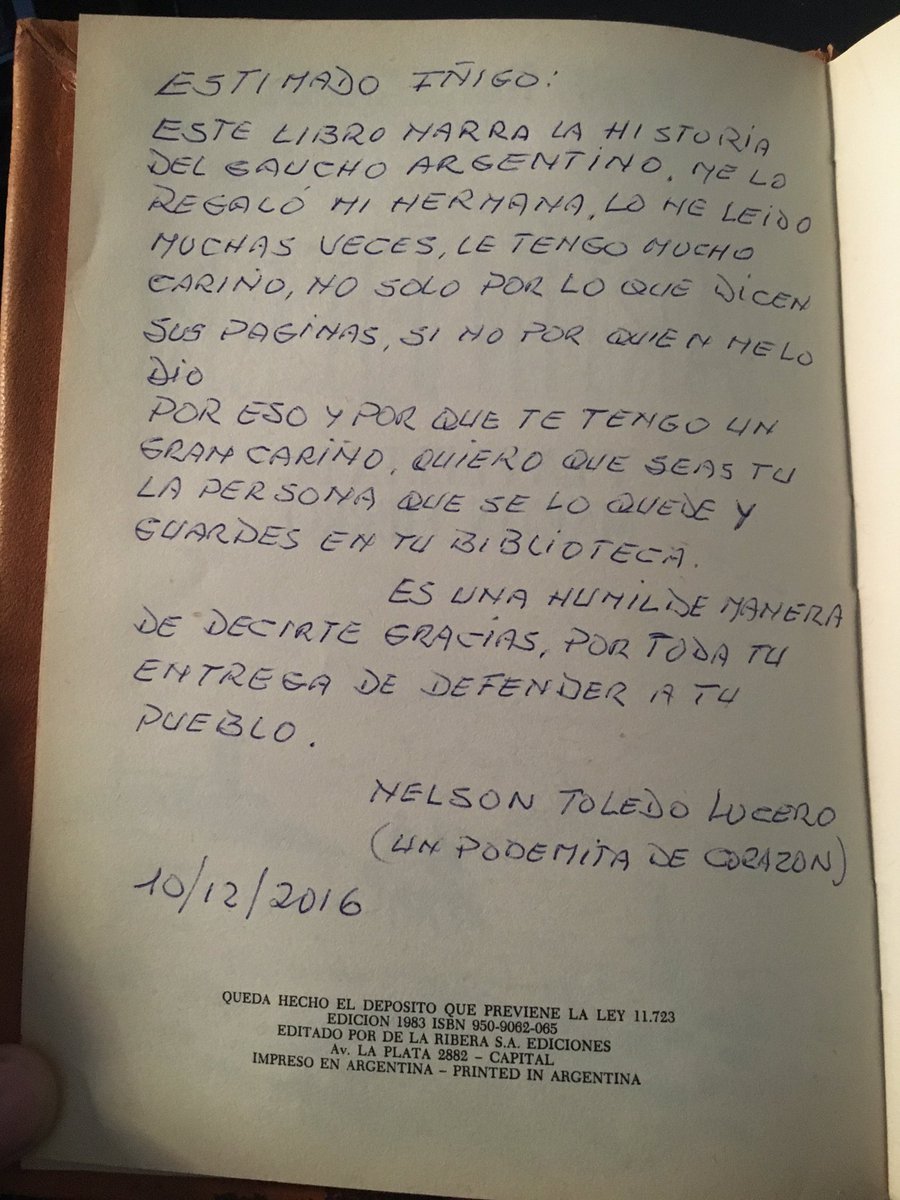 ESTIMADO IÑIGO:
ESTE LIBRO NARRA LA HISTORIA
DEL GAUCHO ARGENTINO, ME LO
REGALÓ MI HERMANA, LO HE LEIDO
MUCHAS VECES, LE TENGO MUCHO
CARIÑO, NO SOLO POR LO QUE DICEN
SUS PAGINAS, SI NO POR QUIEN ME LO
DIO
POR ESO Y POR QUE TE TENGO UN
GRAN CARIÑO, QUIERO QUE SEAS TU
LA PERSONA QUE SE LO QUEDE Y
GUARDES EN TU BIBLIOTECA.
ES UNA HUMILDE MANERA
DE DECIRTE GRACIAS, POR TODA TU
ENTREGA DE DEFENDER A TU
PUEBLO.
NELSON TOLEDO LUCERO
(UN PODEMITA DE CORAZON)
10/12/2016
QUEDA HECHO EL DEPOSITO QUE PREVIENE LA LEY 11.723
EDICION 1983 ISBN 950-9062-065
EDITADO POR DE LA RIBERA S.A. EDICIONES
Av. LA PLATA 2882 – CAPITAL
IMPRESO EN ARGENTINA – PRINTED IN ARGENTINA